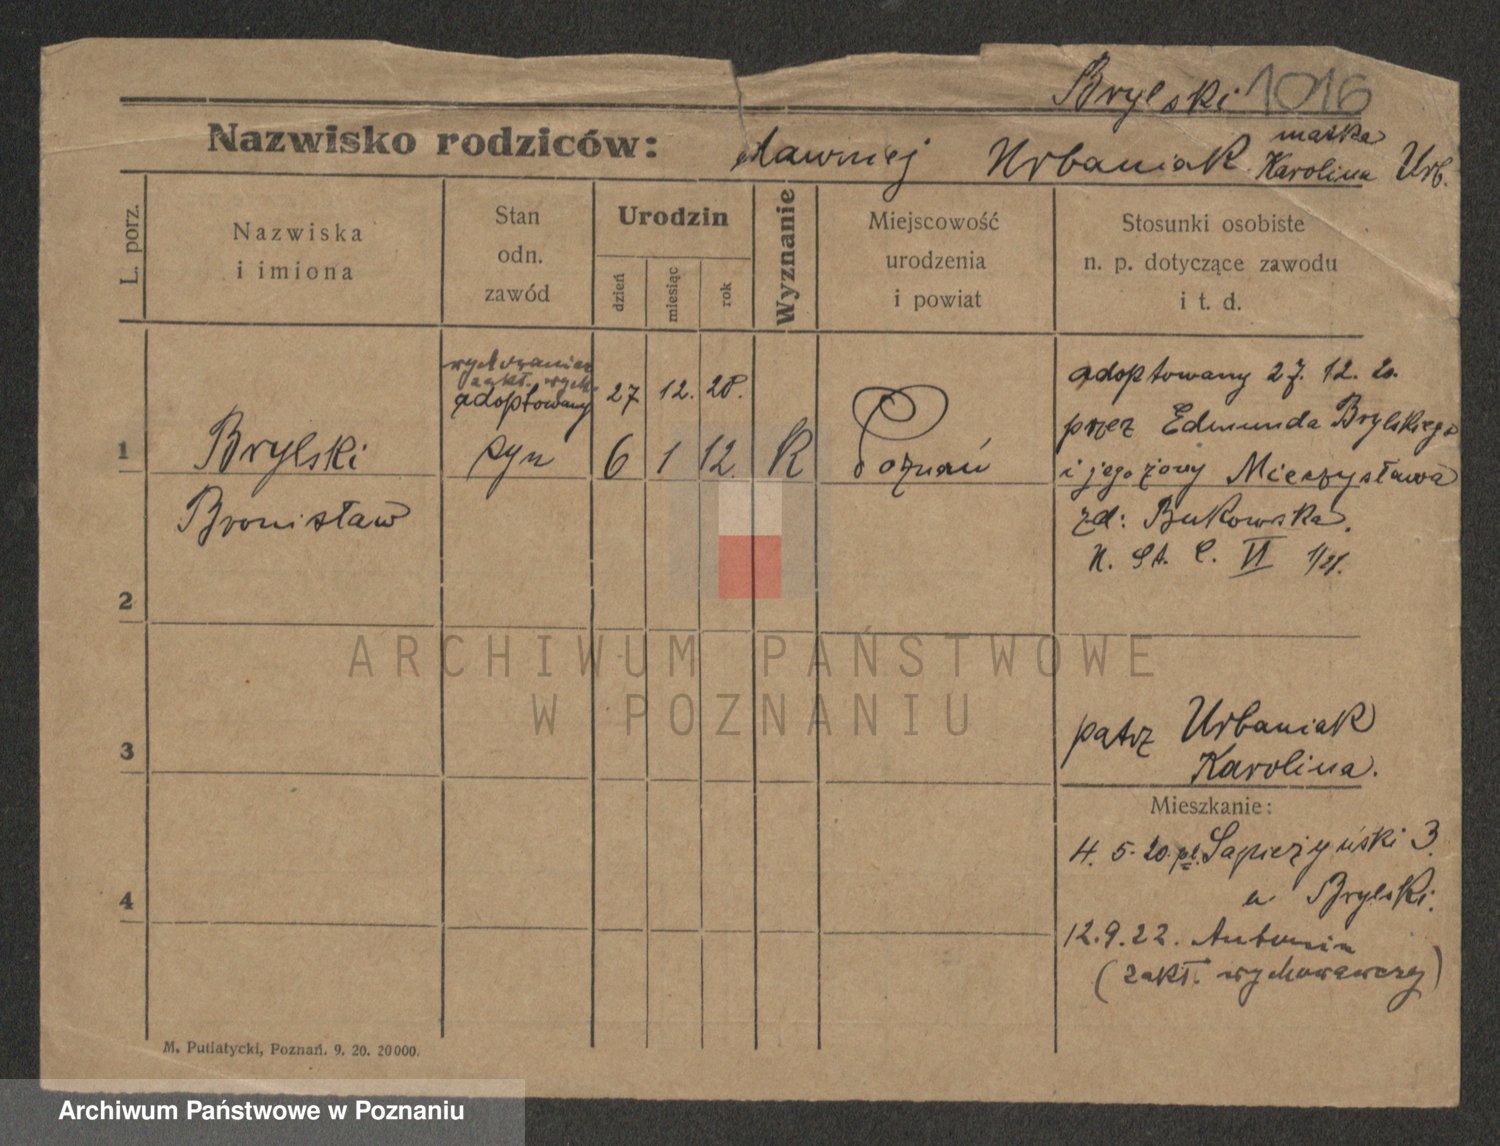 Brylski 1016
Nazwisko rodziców: dawniej Urbaniak matka Karolina Urb.
L. porz.
Nazwiska
i imiona
Stan
odn.
zawód
Urodzin
dzień
miesiąc
rok
Wyznanie
Miejscowość
urodzenia
i powiat
Stosunki osobiste
n. p. dotyczące zawodu
i t. d.
wychowaniec
zakł. wych.
adoptowany 27 12. 20.
1 Brylski syn 6 1 12. K Poznań
Bronisław
adoptowany 27. 12. 20.
przez Edmunda Brylskiego
i jego żony Mieczysława
zd: Bukowska.
N. St. C. VI 1/21.
2
3
4
patrz Urbaniak
Karolina.
Mieszkanie:
4. 5. 20. pl. Sapieżyński 3.
u Brylski.
12. 9. 22. Antonin
(zakł. wychowawczy)
M. Putiatycki, Poznań. 9. 20. 20000.
ARCHIWUM PAŃSTWOWE
W POZNANIU
Archiwum Państwowe w Poznaniu